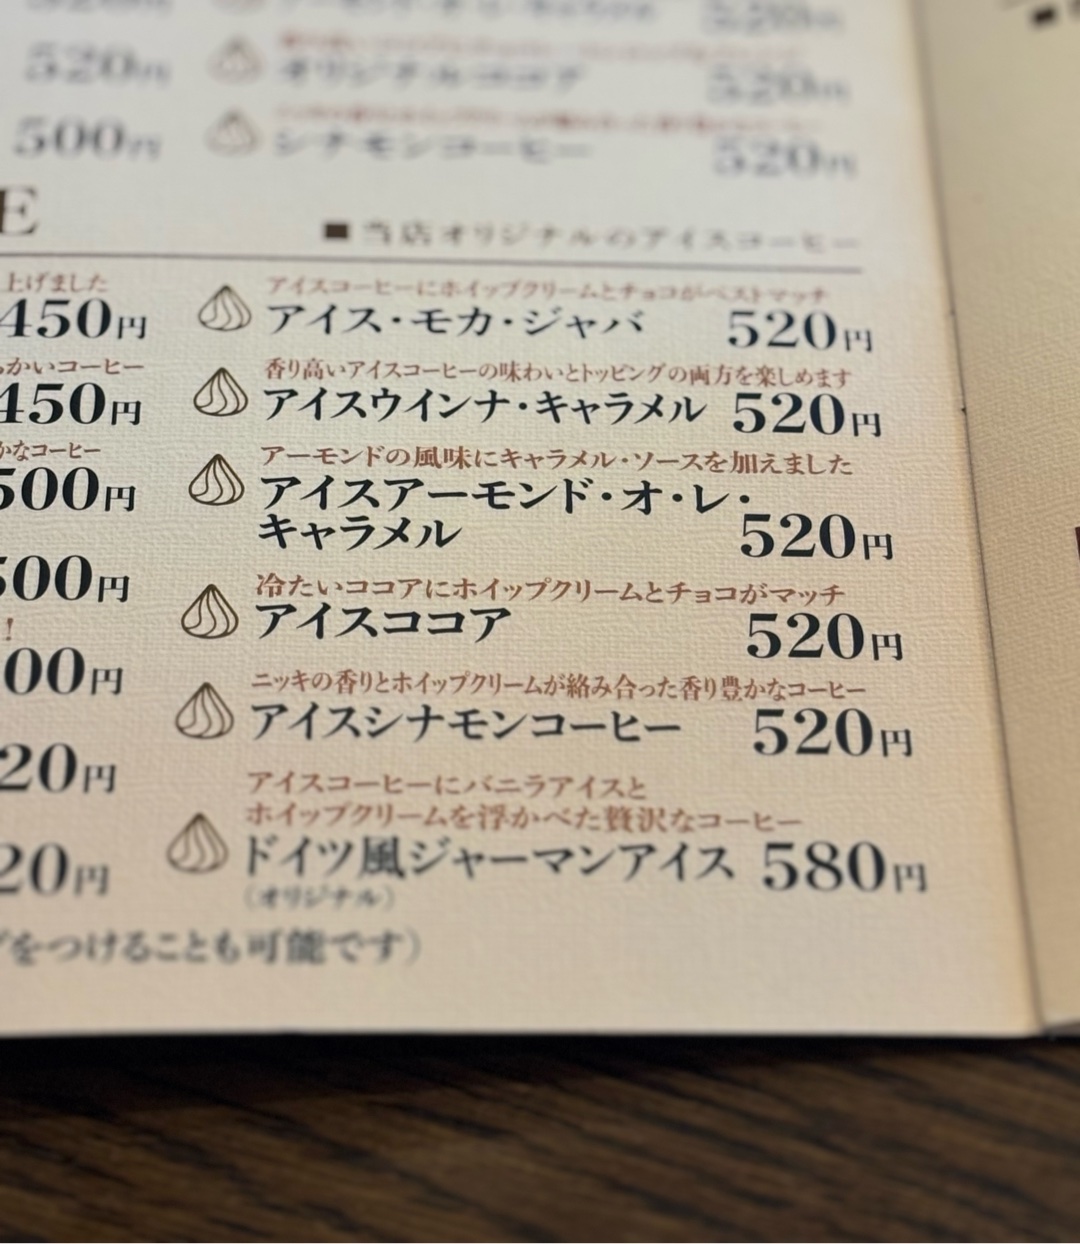 520円
オリジナルココア 520円
500円
シナモンコーヒー 520円
E
■当店オリジナルのアイスコーヒー
上げました
450円
かいコーヒー
450円
かなコーヒー
500円
500円
！
00円
20円
20円
アイスコーヒーにホイップクリームとチョコがベストマッチ
アイス・モカ・ジャバ 520円
香り高いアイスコーヒーの味わいとトッピングの両方を楽しめます
アイスウインナ・キャラメル 520円
アーモンドの風味にキャラメル・ソースを加えました
アイスアーモンド・オ・レ・
キャラメル 520円
冷たいココアにホイップクリームとチョコがマッチ
アイスココア 520円
ニッキの香りとホイップクリームが絡み合った香り豊かなコーヒー
アイスシナモンコーヒー 520円
アイスコーヒーにバニラアイスと
ホイップクリームを浮かべた贅沢なコーヒー
ドイツ風ジャーマンアイス 580円
（オリジナル）
をつけることも可能です）